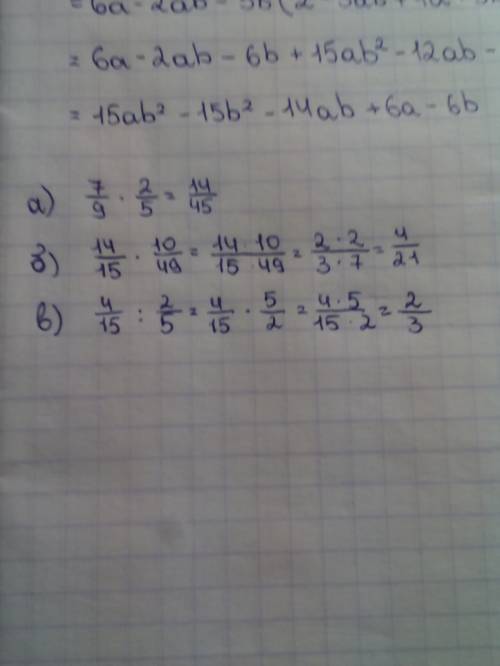 = 6a - 2ab - 3b(2 - 5ab + 4a
= 6a - 2ab - 6b + 15ab² - 12ab -
= 15ab² - 15b² - 14ab + 6a - 6b
а) 7/9 · 2/5 = 14/45
б) 14/15 · 10/49 = 14·10/15·49 = 2·2/3·7 = 4/21
в) 4/15 : 2/5 = 4/15 · 5/2 = 4·5/15·2 = 2/3